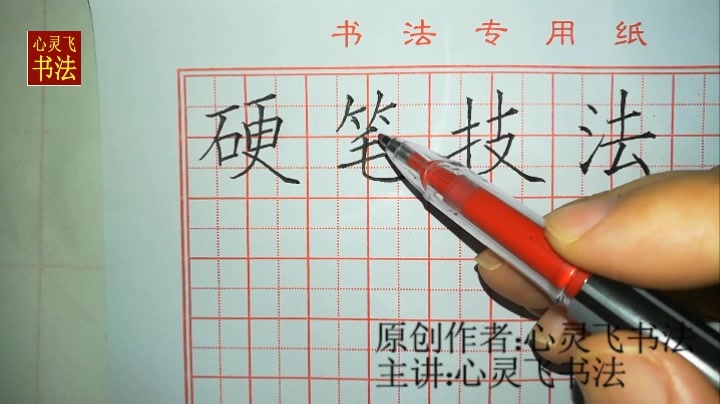 心灵飞
书法
书法专用纸
硬笔技法
原创作者:心灵飞书法
主讲:心灵飞书法